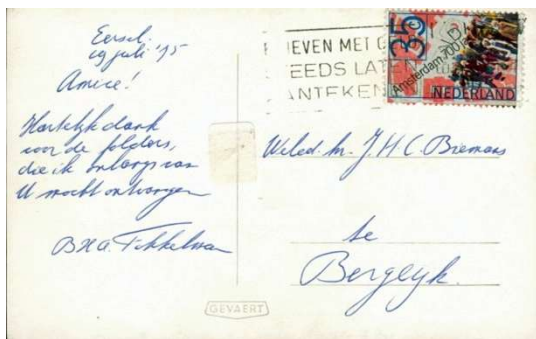 Eersel.
19 juli '75
Amice!
Hartelijk dank
voor de folders,
die ik onlangs van
U mocht ontvangen
GEVAERT
IEVEN MET G
EEDS LATEN
ANTEKEN
35
Amsterdam 700
NEDERLAND
J.H.C. Biemans
te
Bergeyk.